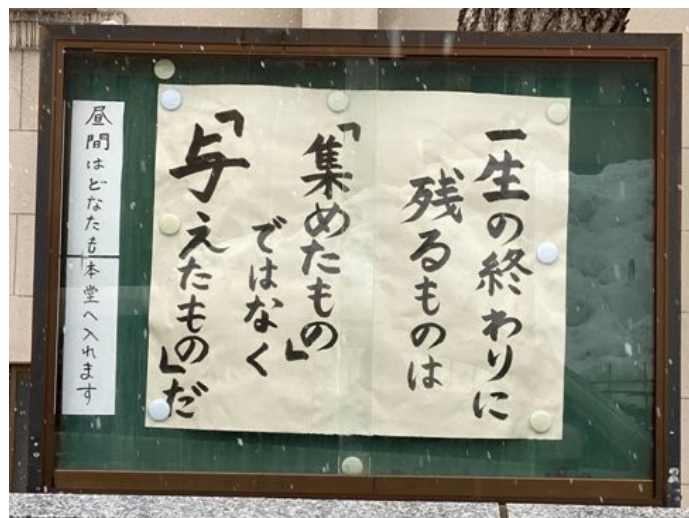 一生の終わりに
残るものは
「集めたもの」
ではなく
「与えたもの」だ
昼間はどなたも本堂へ入れます